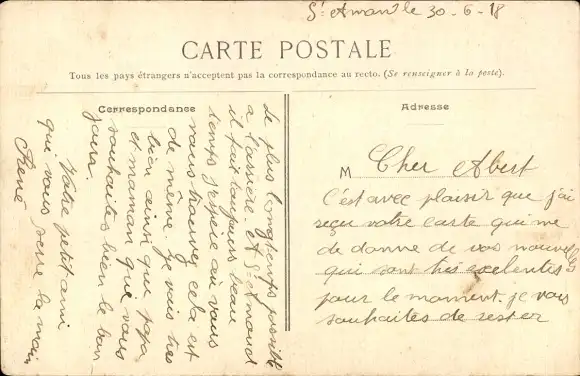 St Amand le 30-6-18
CARTE POSTALE
Tous les pays étrangers n'acceptent pas la correspondance au recto. (Se renseigner à la poste).
Correspondance
Adresse
M Cher Abert
C'est avec plaisir que j'ai
reçu votre carte qui me
de donne de vos nouvelles
qui sont très excelentes
pour le moment. je vous
souhaites de rester
le plus longtemps possible
a l'arrière. A St Amand
il fait toujours beau
temps j'espère au vous
vous trouvez cela est
de même. Je vais tres
bien ainsi que papa
et maman que vous
souhaites bien le bon-
jour.
Votre petit ami
qui vous serre la main
René